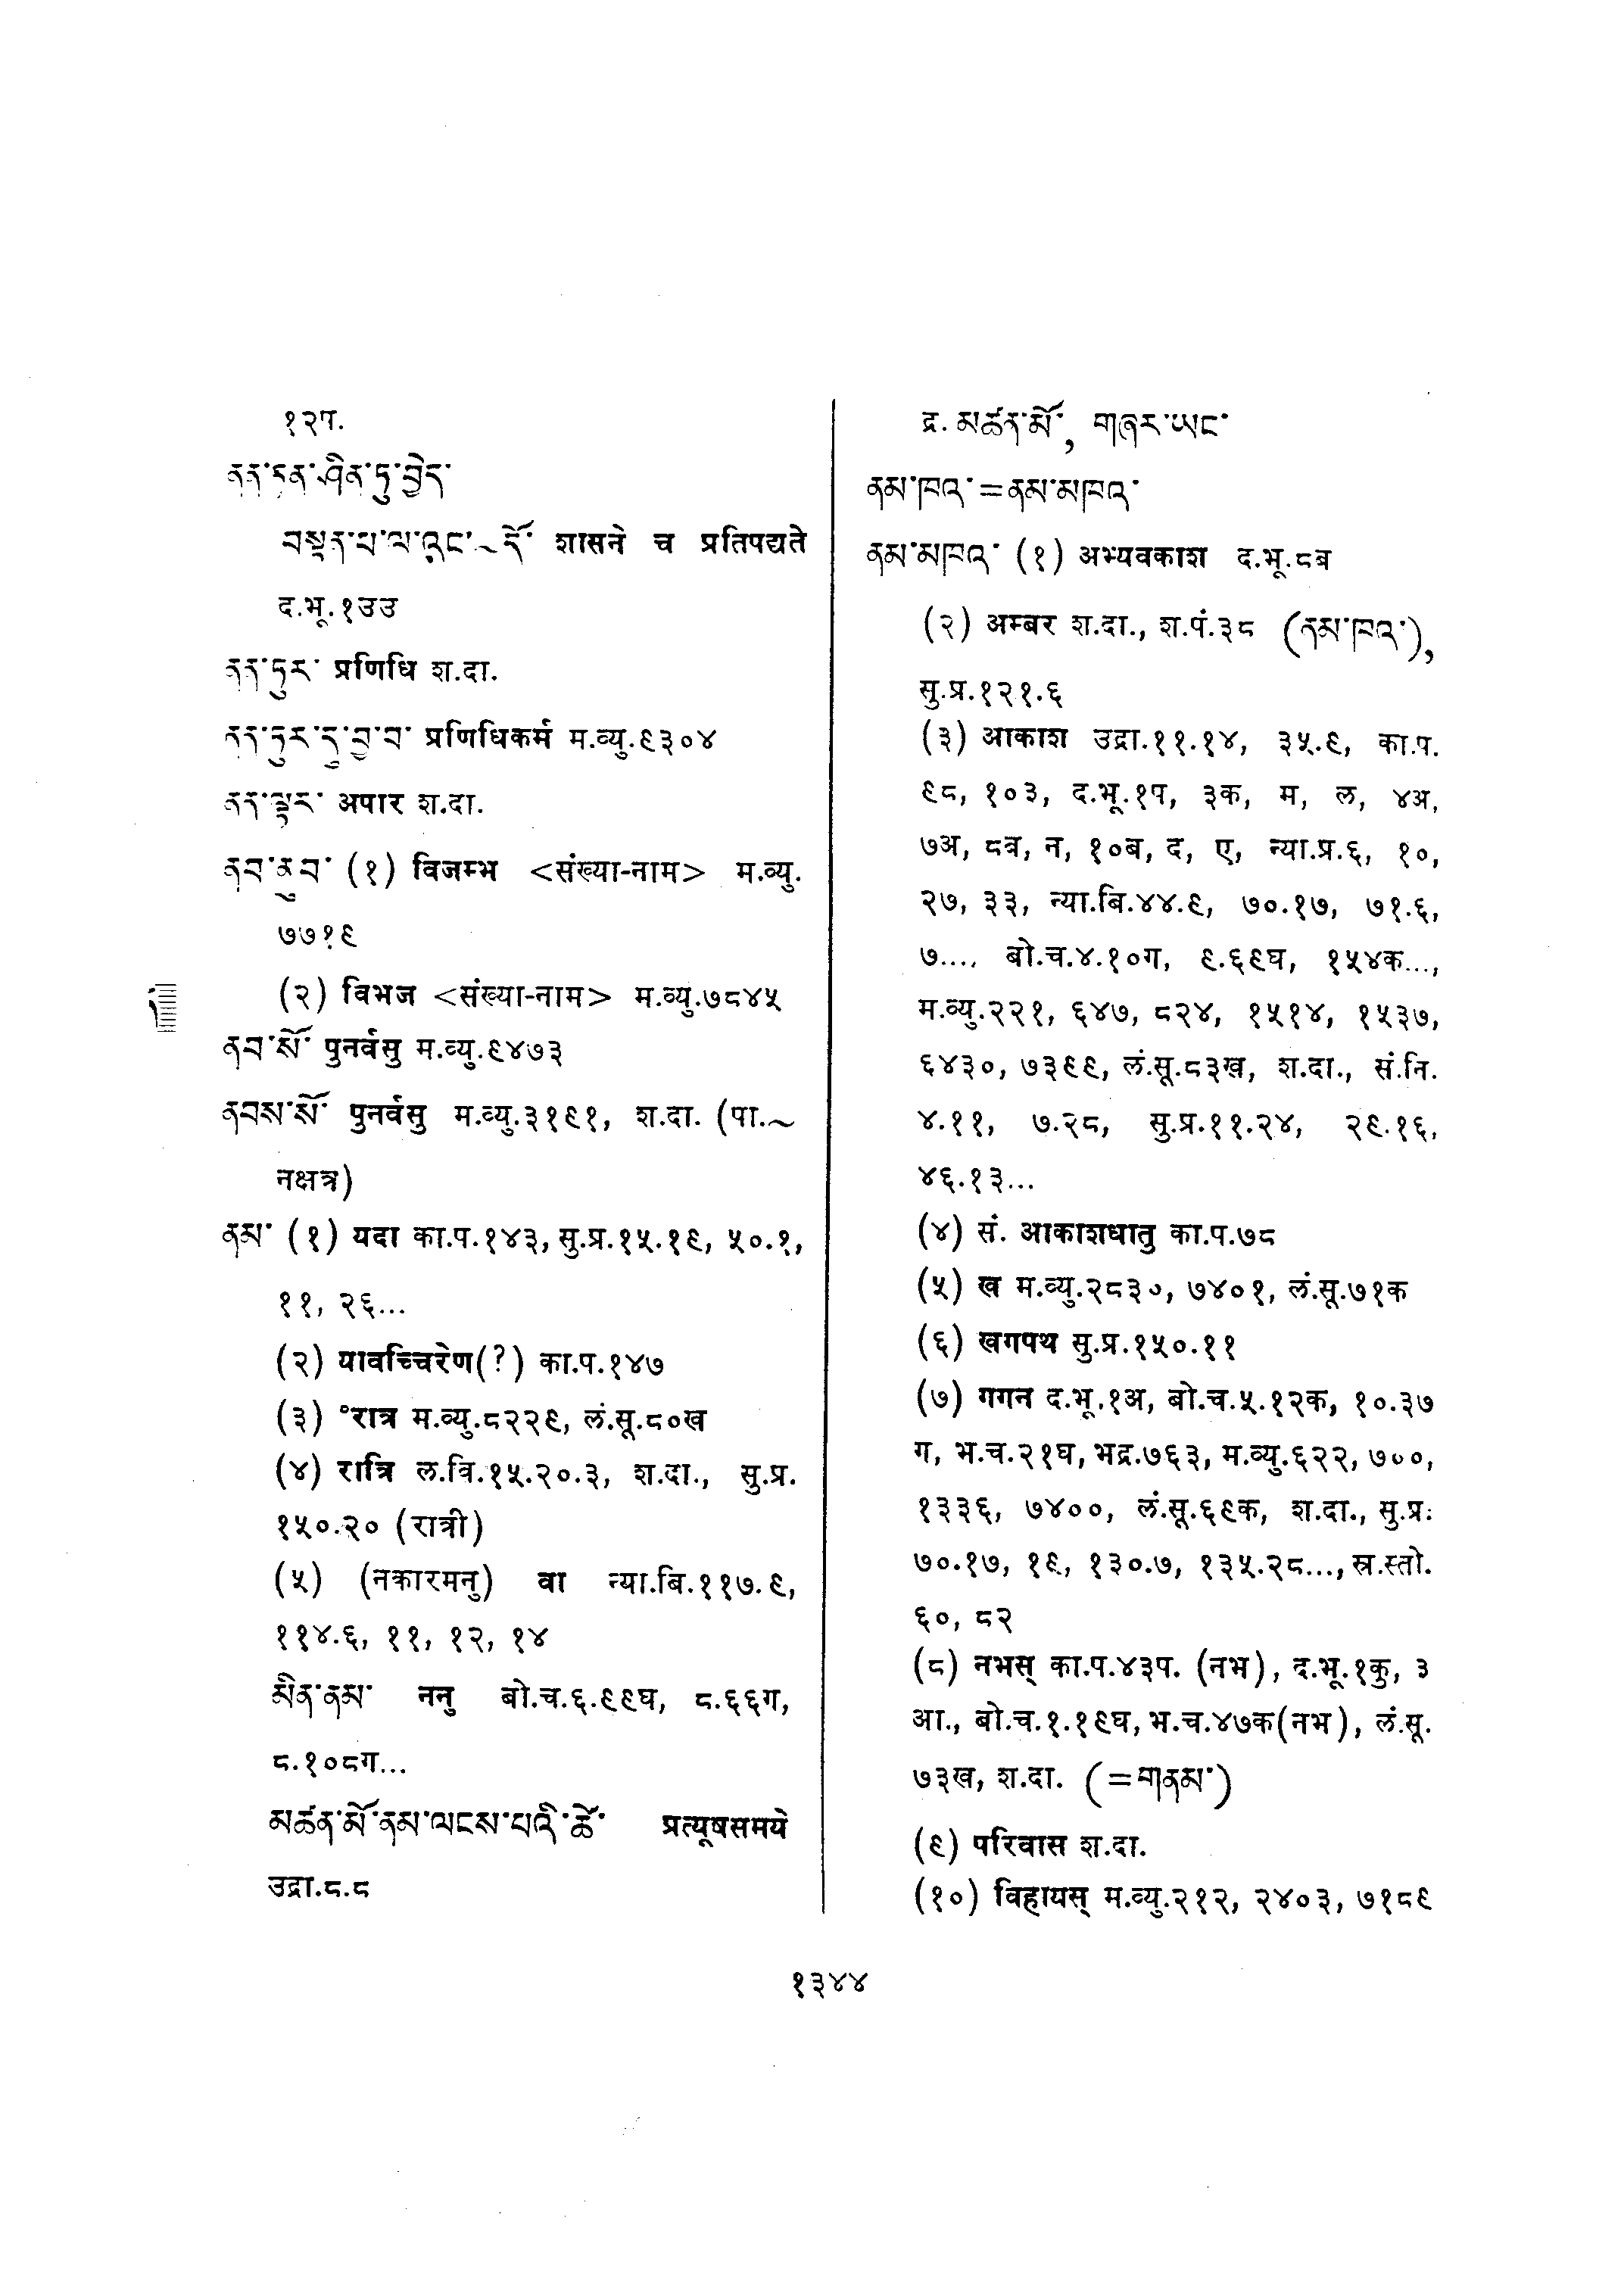 १२प.
ནན་ཏན་ཤིན་ཏུ་བྱེད་
བསྟན་པ་ལ་འང་~དོ་ शासने च प्रतिपद्यते
द.भू.१उउ
ནན་ཏུར་ प्रणिधि श.दा.
ནན་ཏུར་དུ་བྱ་བ་ प्रणिधिकर्म म.व्यु.९३०४
ནན་ལྟར་ अपार श.दा.
ནབ་ནུབ་ (१) विजम्भ <संख्या-नाम> म.व्यु.
७७१९
(२) विभज <संख्या-नाम> म.व्यु.७८४५
ནབ་སོ་ पुनर्वसु म.व्यु.९४७३
ནབས་སོ་ पुनर्वसु म.व्यु.३१९१, श.दा. (पा.~
नक्षत्र)
ནམ་ (१) यदा का.प.१४३, सु.प्र.१५.१९, ५०.१,
११, २६...
(२) यावच्चिरेण(?) का.प.१४७
(३) °रात्र म.व्यु.८२२९, लं.सू.८०ख
(४) रात्रि ल.वि.१५.२०.३, श.दा., सु.प्र.
१५०.२० (रात्री)
(५) (नकारमनु) वा न्या.बि.११७.९,
११४.६, ११, १२, १४
མིན་ནམ་ ननु बो.च.६.९९घ, ८.६६ग,
८.१०८ग...
མཚན་མོ་ནམ་ལངས་པའི་ཚེ་ प्रत्यूषसमये
उद्रा.८.८
द्र. མཚན་མོ་, གཞར་ཡང་
ནམ་ཁའ་=ནམ་མཁའ་
ནམ་མཁའ་ (१) अभ्यवकाश द.भू.८ब
(२) अम्बर श.दा., श.पं.३८ (ནམ་ཁའ་),
सु.प्र.१२१.६
(३) आकाश उद्रा.११.१४, ३५.९, का.प.
९८, १०३, द.भू.१प, ३क, म, ल, ४अ,
७अ, ८त्र, न, १०ब, द, ए, न्या.प्र.६, १०,
२७, ३३, न्या.बि.४४.९, ७०.१७, ७१.६,
७..., बो.च.४.१०ग, ९.६९घ, १५४क...,
म.व्यु.२२१, ६४७, ८२४, १५१४, १५३७,
६४३०, ७३९९, लं.सू.८३ख, श.दा., सं.नि.
४.११, ७.२८, सु.प्र.११.२४, २९.१६,
४६.१३...
(४) सं. आकाशधातु का.प.७८
(५) ख म.व्यु.२८३०, ७४०१, लं.सू.७१क
(६) खगपथ सु.प्र.१५०.११
(७) गगन द.भू.१अ, बो.च.५.१२क, १०.३७
ग, भ.च.२१घ, भद्र.७६३, म.व्यु.६२२, ७००,
१३३६, ७४००, लं.सू.६९क, श.दा., सु.प्र.
७०.१७, १९, १३०.७, १३५.२८..., स्र.स्तो.
६०, ८२
(८) नभस् का.प.४३प. (नभ), द.भू.१कु, ३
आ., बो.च.१.१९घ, भ.च.४७क(नभ), लं.सू.
७३ख, श.दा. (=གནམ་)
(९) परिवास श.दा.
(१०) विहायस् म.व्यु.२१२, २४०३, ७१८९
१३४४